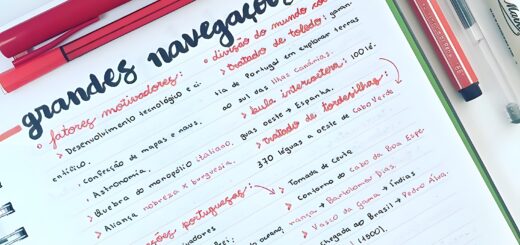 grandes navegaçõ
• fatores motivadores:
> Desenvolvimento tecnológico e ci
entífico.
· Confecção de mapas e naus.
· Astronomia.
> Quebra do monopólio italiano.
> Aliança nobreza x burguesia.
ções portuguesas:
vadores
• divisão do mundo co
> tratado de toledo: garan
tia de Portugal em explorar terras
ao sul das Ilhas Canárias.
> bula intercoetera: 100 lé
guas oeste → Espanha.
> tratado de tordesilhas:
370 léguas a oeste de Cabo Verde
> Tomada de Ceuta
> Contorno do Cabo da Boa Espe
rança → Bartolomeu Dias.
> Vasco da Gama → Índias
Chegada ao Brasil → Pedro Álva.
(1500).